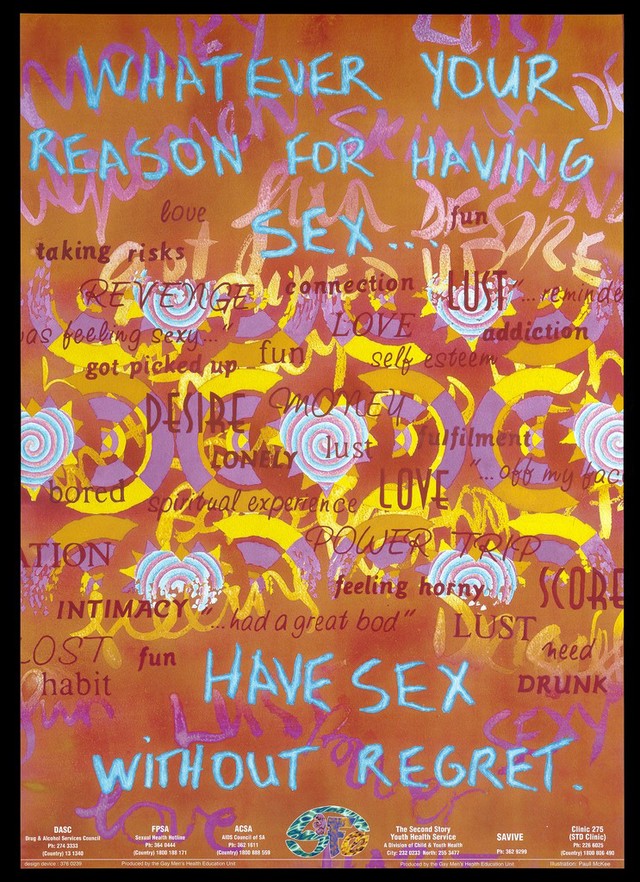 WHATEVER YOUR
REASON FOR HAVING
SEX...
love
fun
taking risks
REVENGE
connection
LUST
"...reminde
LOVE
as feeling sexy..."
addiction
fun
self esteem
got picked up
DESIRE
MONEY
lust
fulfilment
LONELY
"...off my fac
bored
spiritual experience
LOVE
ATION
POWER TRIP
feeling horny
SCORE
INTIMACY
"...had a great bod"
LUST
LOST
fun
need
habit
DRUNK
HAVE SEX
WITHOUT REGRET.
DASC
Drug & Alcohol Services Council
Ph: 274 3333
(Country) 13 1340
FPSA
Sexual Health Hotline
Ph: 364 0444
(Country) 1800 188 171
ACSA
AIDS Council of SA
Ph: 362 1611
(Country) 1800 888 559
The Second Story
Youth Health Service
A Division of Child & Youth Health
City: 232 0233 North: 255 3477
SAVIVE
Ph: 362 9299
Clinic 275
(STD Clinic)
Ph: 226 6025
(Country) 1800 806 490
design device : 376 0239
Produced by the Gay Men's Health Education Unit
Produced by the Gay Men's Health Education Unit
Illustration: Paull McKee